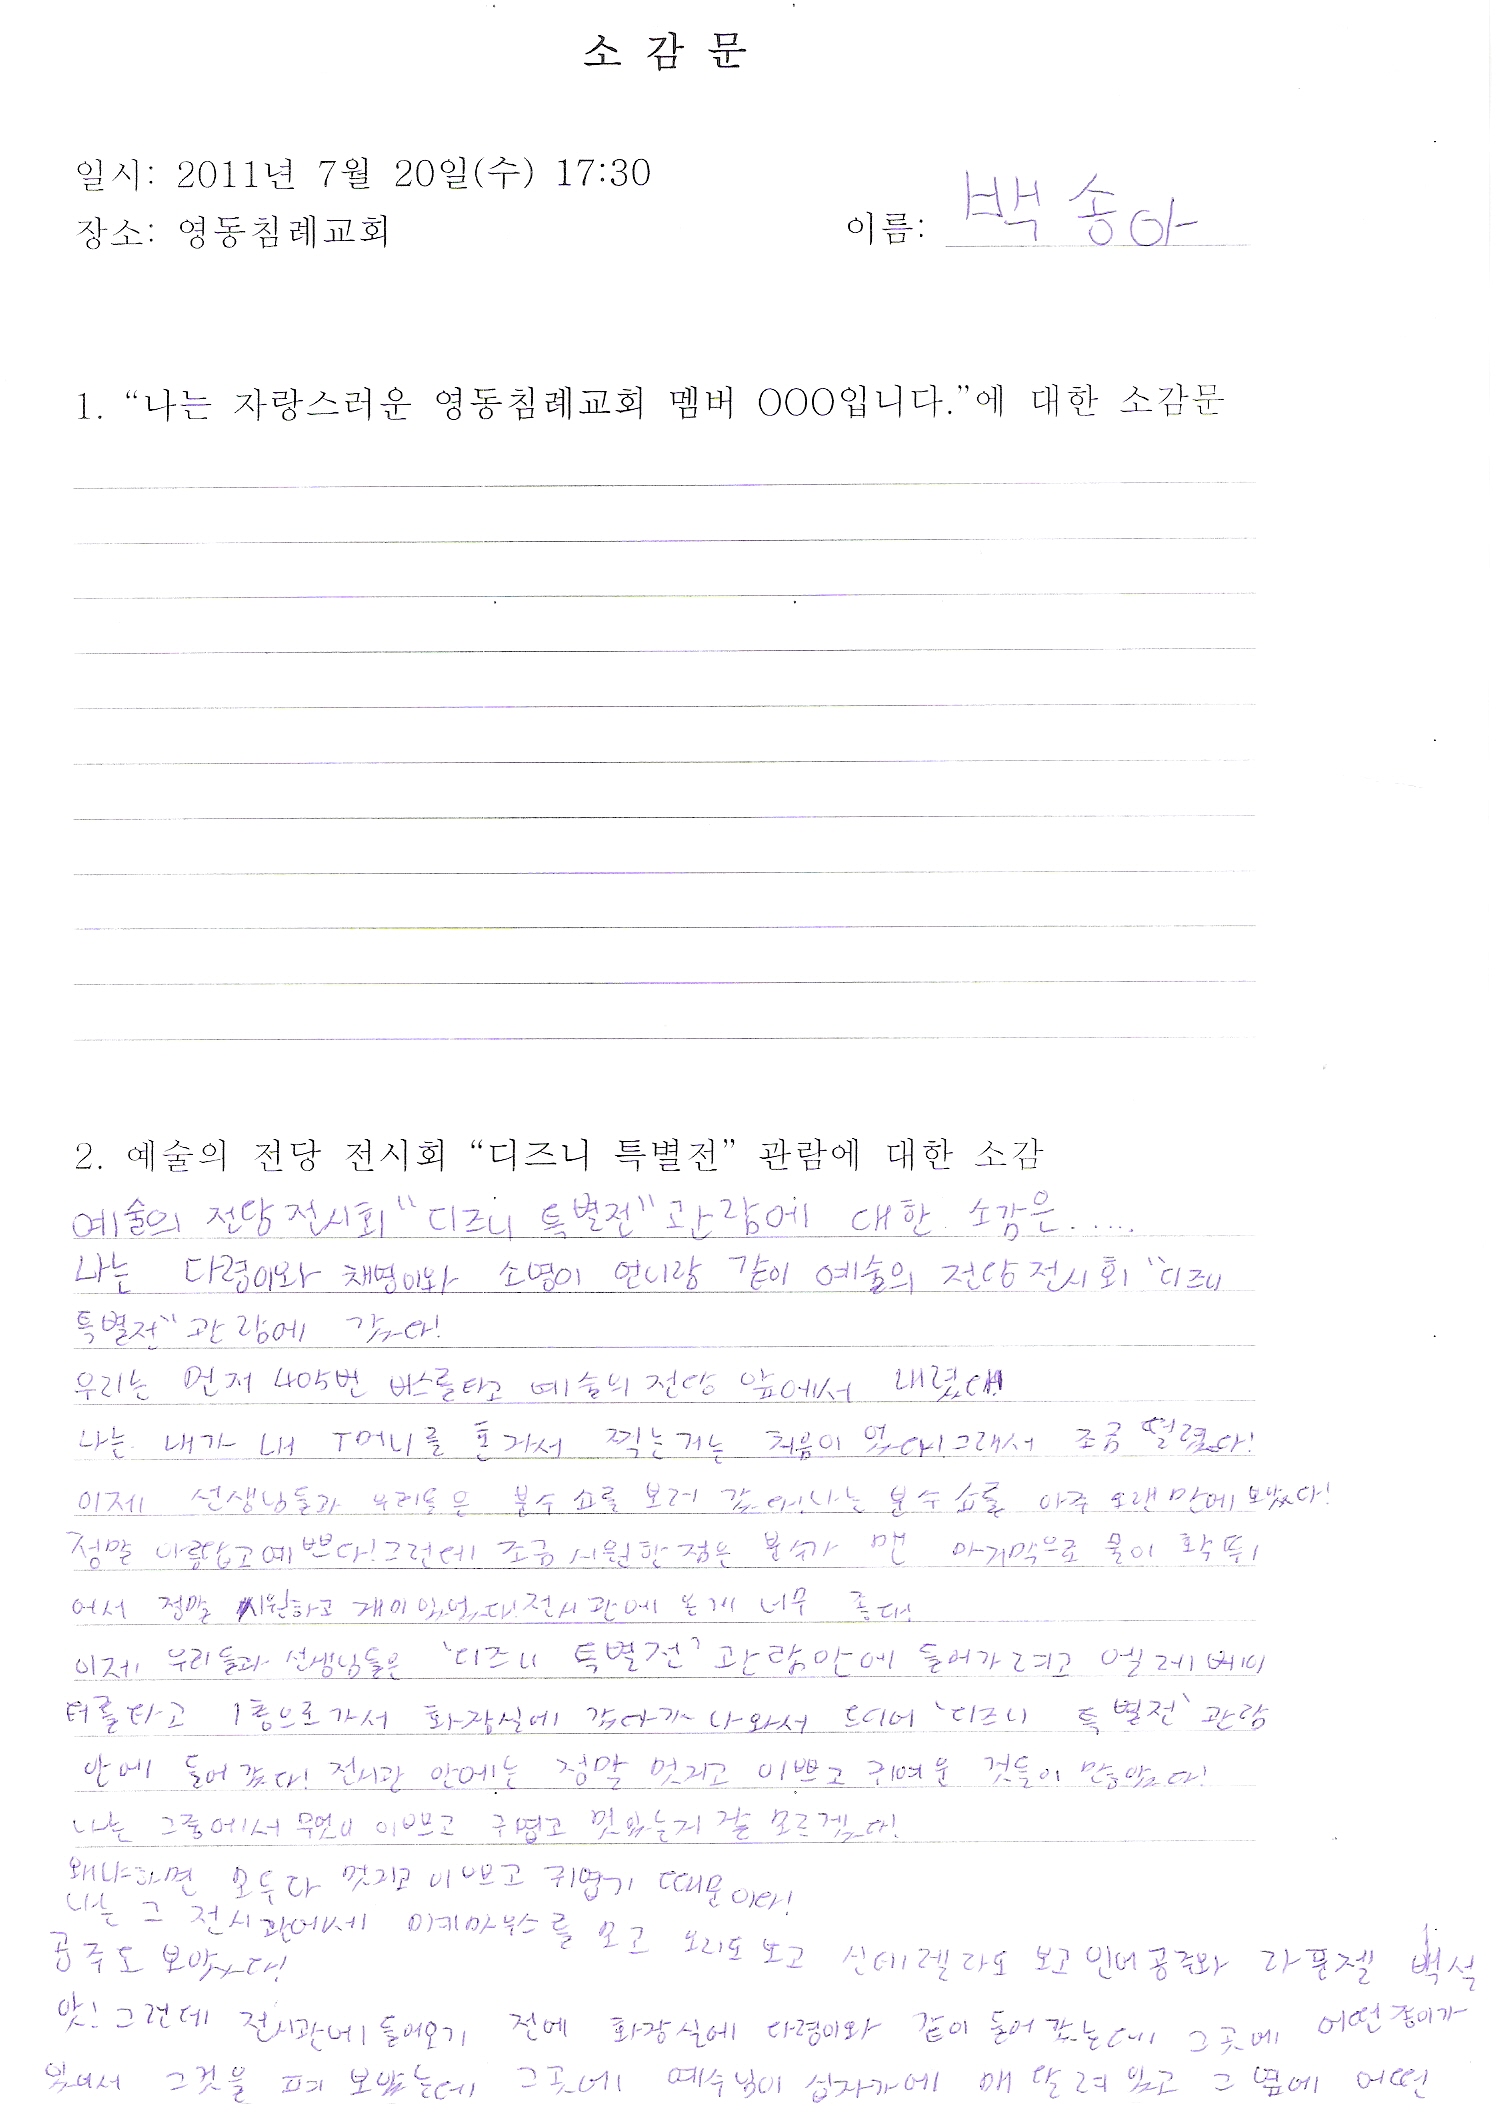 소 감 문
일시: 2011년 7월 20일(수) 17:30
장소: 영동침례교회
이름: 백송아
1. “나는 자랑스러운 영동침례교회 멤버 OOO입니다.”에 대한 소감문
2. 예술의 전당 전시회 “디즈니 특별전” 관람에 대한 소감
예술의 전당 전시회 "디즈니 특별전" 관람에 대한 소감은.....
나는 다령이와 채명이와 소명이 언니랑 같이 예술의 전당 전시회 "디즈니
특별전" 관람에 갔다!
우리는 먼저 405번 버스를타고 예술의 전당 앞에서 내렸다!
나는 내가 내 T머니를 혼자서 찍는거는 처음이 었다!그래서 조금 떨렸다!
이제 선생님들과 우리들은 분수 쇼를 보러 갔다!나는 분수 쇼를 아주 오랜만에 보았다!
정말 아름답고예쁘다!그런데 조금 시원한 점은 분수가 맨 마지막으로 물이 확 튀
어서 정말 시원하고 재미있었다!전시관에 온게 너무 좋다!
이제 우리들과 선생님들은 '디즈니 특별전' 관람안에 들어가려고 엘레베이
터를타고 1층으로가서 화장실에 갔다가 나와서 드디어 '디즈니 특별전' 관람
안에 들어갔다! 전시관 안에는 정말 멋지고 이쁘고 귀여운 것들이 많았다!
나는 그중에서 무엇이 이쁘고 귀엽고 멋있는지 잘 모르겠다!
왜냐하면 모두다 멋지고 이쁘고 귀엽기 때문이다!
나는 그 전시관에서 미키마우스를 보고 오리도 보고 신데렐라도 보고 인어공주와 라푼젤 백설
공주도 보았다!
앗! 그런데 전시관에 들어오기 전에 화장실에 다령이와 같이 들어갔는데 그곳에 어떤종이가
있어서 그것을 펴 보았는데 그곳에 예수님이 십자가에 매달려 있고 그 옆에 어떤